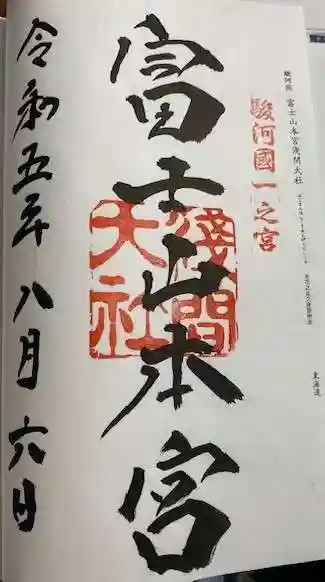 駿河国 富士山本宮浅間大社
東海道
駿河國一之宮
富士山本宮
淺間
大社
令和五年八月六日